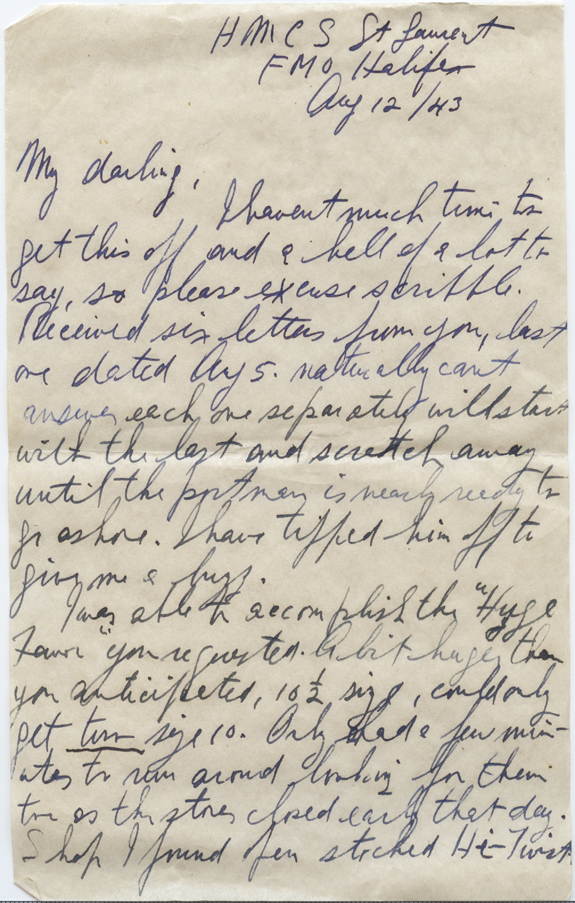 HMCS St Laurent
FMO Halifax
Aug 12/43
My darling,
I havent much time to
get this off and a hell of a lot to
say, so please excuse scribble.
Received six letters from you, last
one dated Aug 5. naturally cant
answer each one separately will start
with the last and scratch away
until the postman is nearly ready to
go ashore. I have tipped him off to
give me a buzz.
I was able to accomplish the "Huge
Favor" you requested. A bit huger than
you anticipated, 10½ size, could only
get two size 10. Only had a few min-
utes to run around looking for them
too as the stores closed early that day.
Shop I found open stocked Hi-Twist